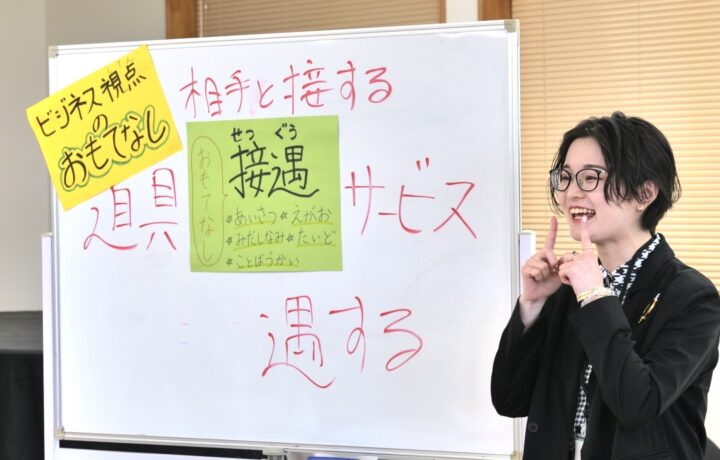 ビジネス視点
の
おもてなし
相手と接する
せつ ぐう
接遇
おもてなし
★あいさつ★えがお
★みだしなみ★たいど
★ことばづかい
道具
サービス
遇する